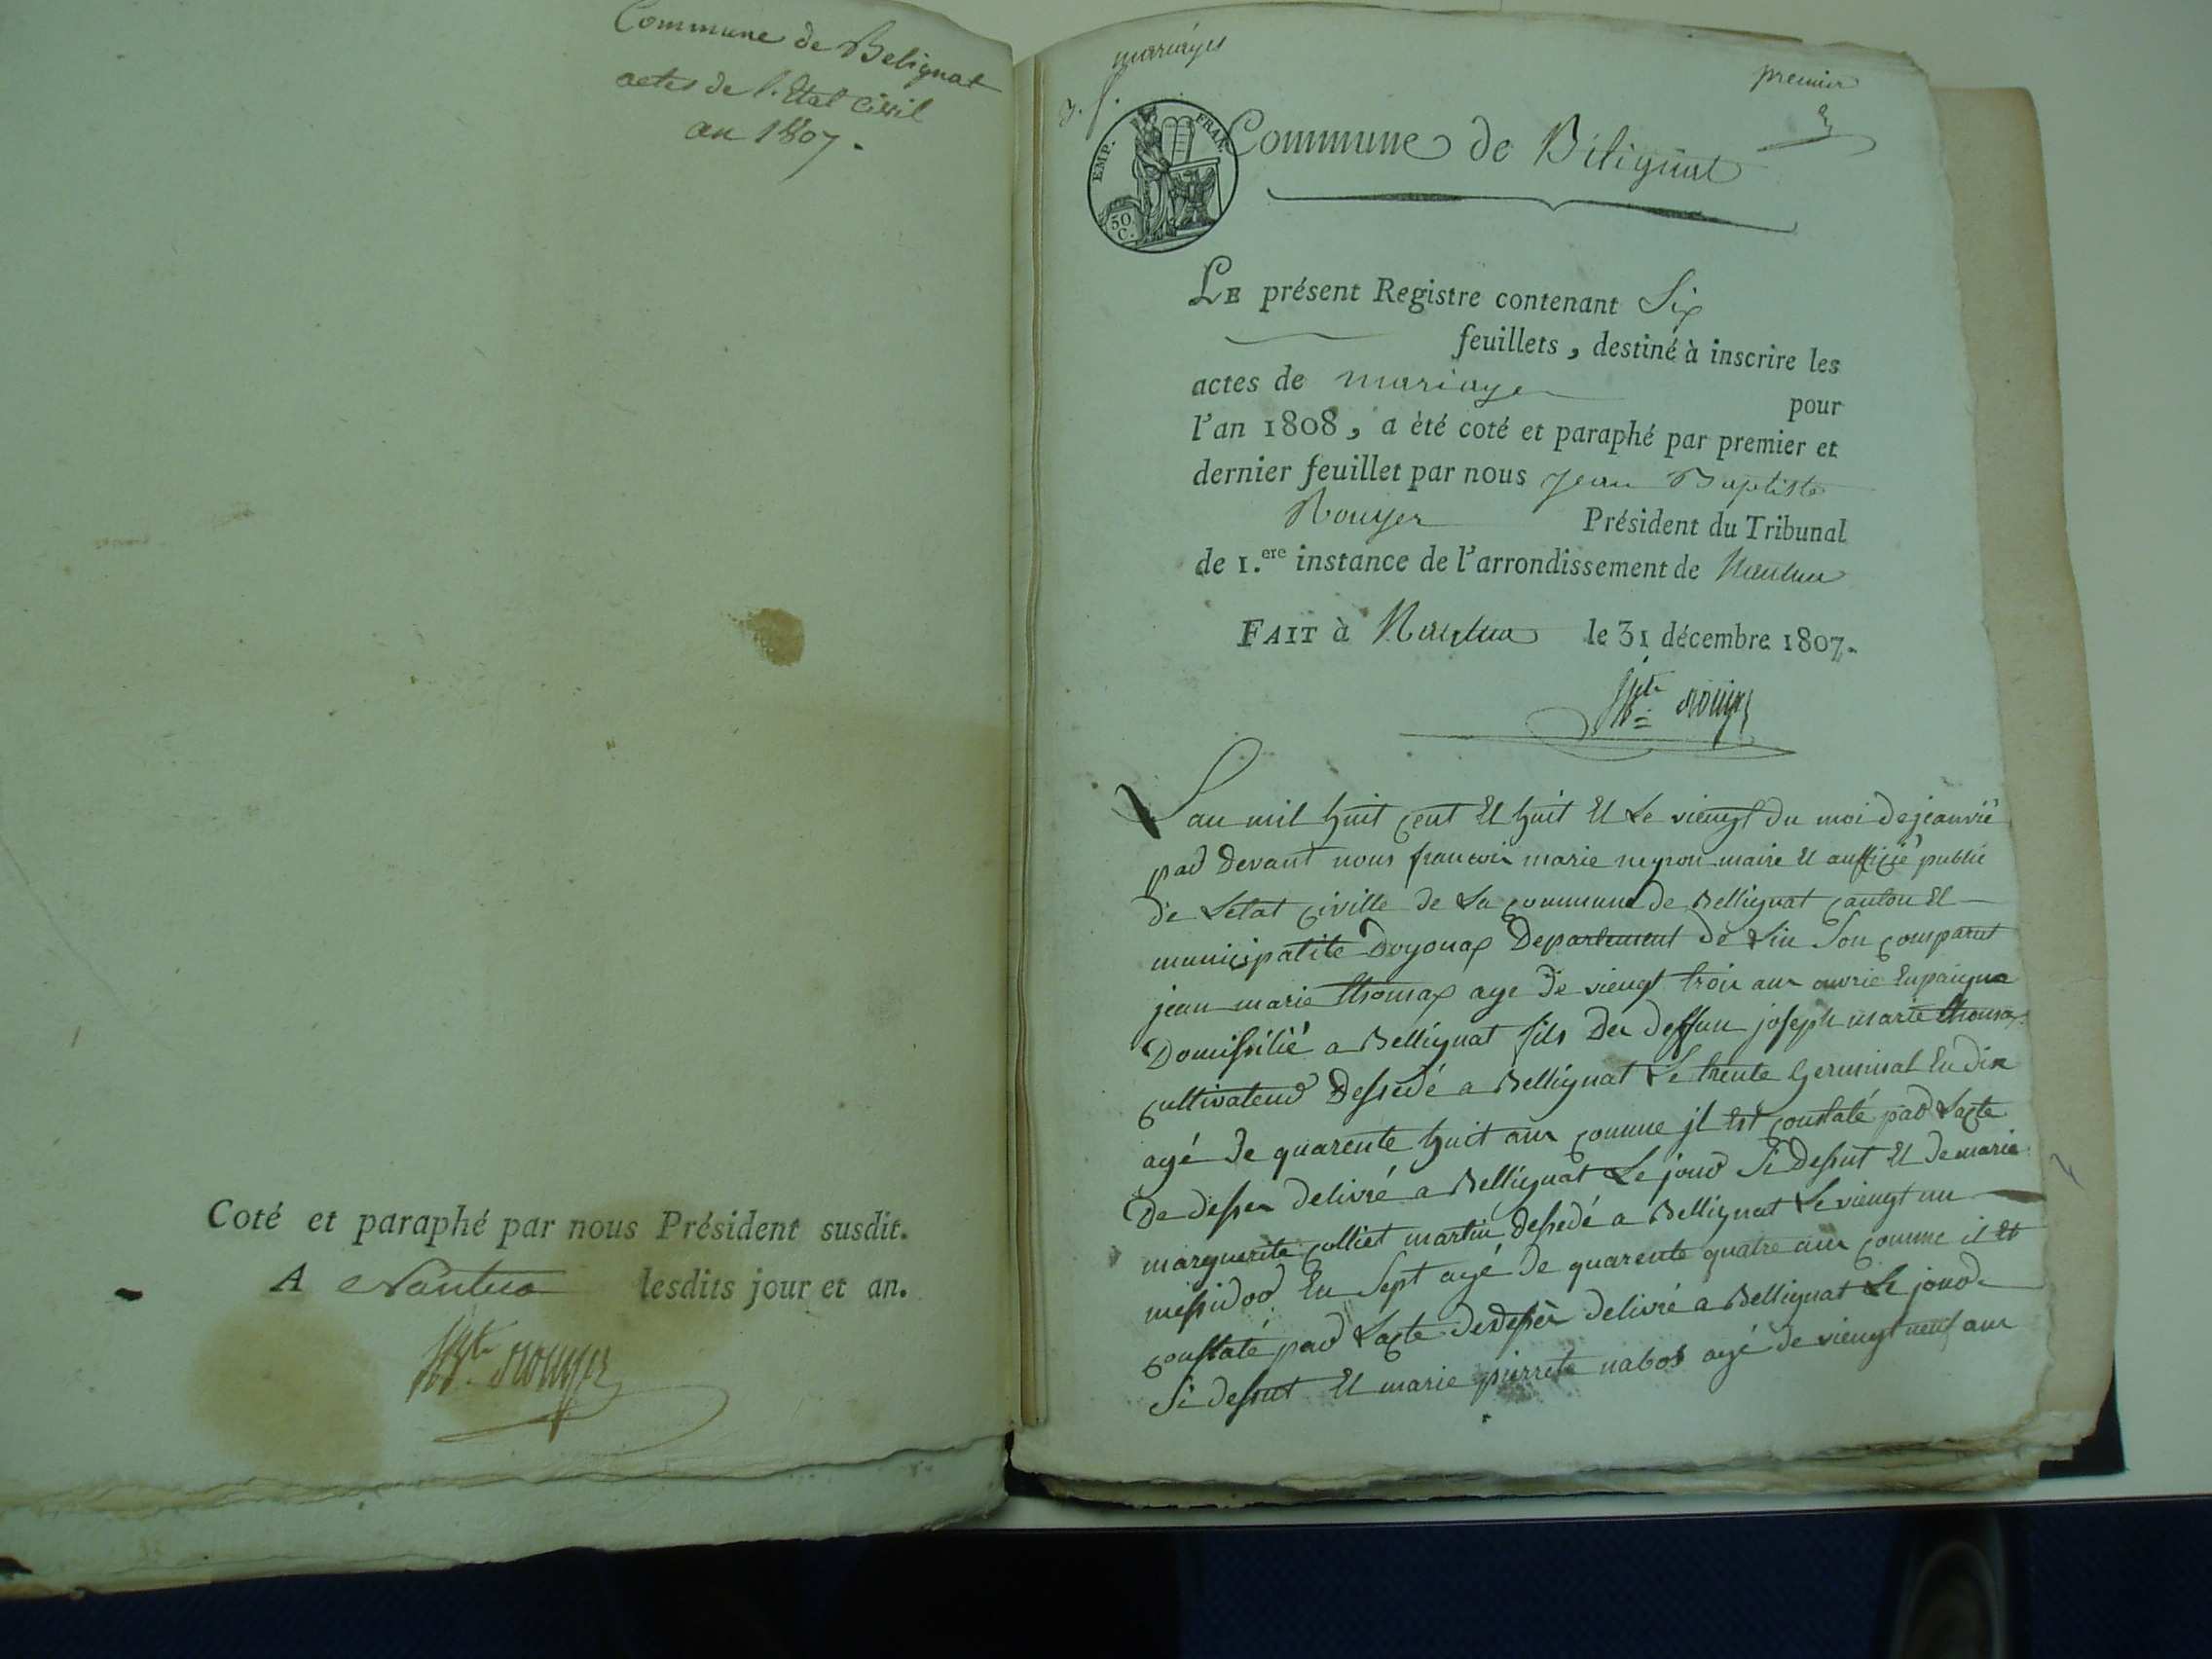 Commune de Belignat
actes de l'Etat Civil
an 1807.
Coté et paraphé par nous Président susdit.
A Nantua lesdits jour et an.
Bte Rouyer
mariages
premier
EMP. FRAN.
50
C.
Commune de Bélignat
LE présent Registre contenant Six
feuillets, destiné à inscrire les
actes de mariage
pour
l'an 1808, a èté coté et paraphé par premier et
dernier feuillet par nous Jean Baptiste
Rouyer Président du Tribunal
de 1.ere instance de l'arrondissement de Nantua
FAIT à Nantua le 31 décembre 1807.
Bte Rouyer
Lan mil huit cent et huit et le viengt du moi de jeanvié
par devant nous francois marie neyron maire et aufficié public
de Letat civille de La commune de Bellignat canton et
municipalité Doyonax Departement de Lin Son comparut
jean marie thomax agé de viengt troix ans ouvrié en paigne
Domissilié a Bellignat fils de deffun joseph marie thomax
cultivateur Dessedé a Bellignat Le trente Germinal en dix
agé de quarente huit ans comme jl est constaté par Lacte
De desses delivré a Bellignat Le jour Si Dessut et de marie
marguerite colliet martin Dessedé a Bellignat Le viengt un
messidor en Sept agé de quarente quatre ans comme il et
constaté par Lacte de dessès delivré a Bellignat Le jour
Si dessut et marie pierrete nabos agé de viengt neuf ans